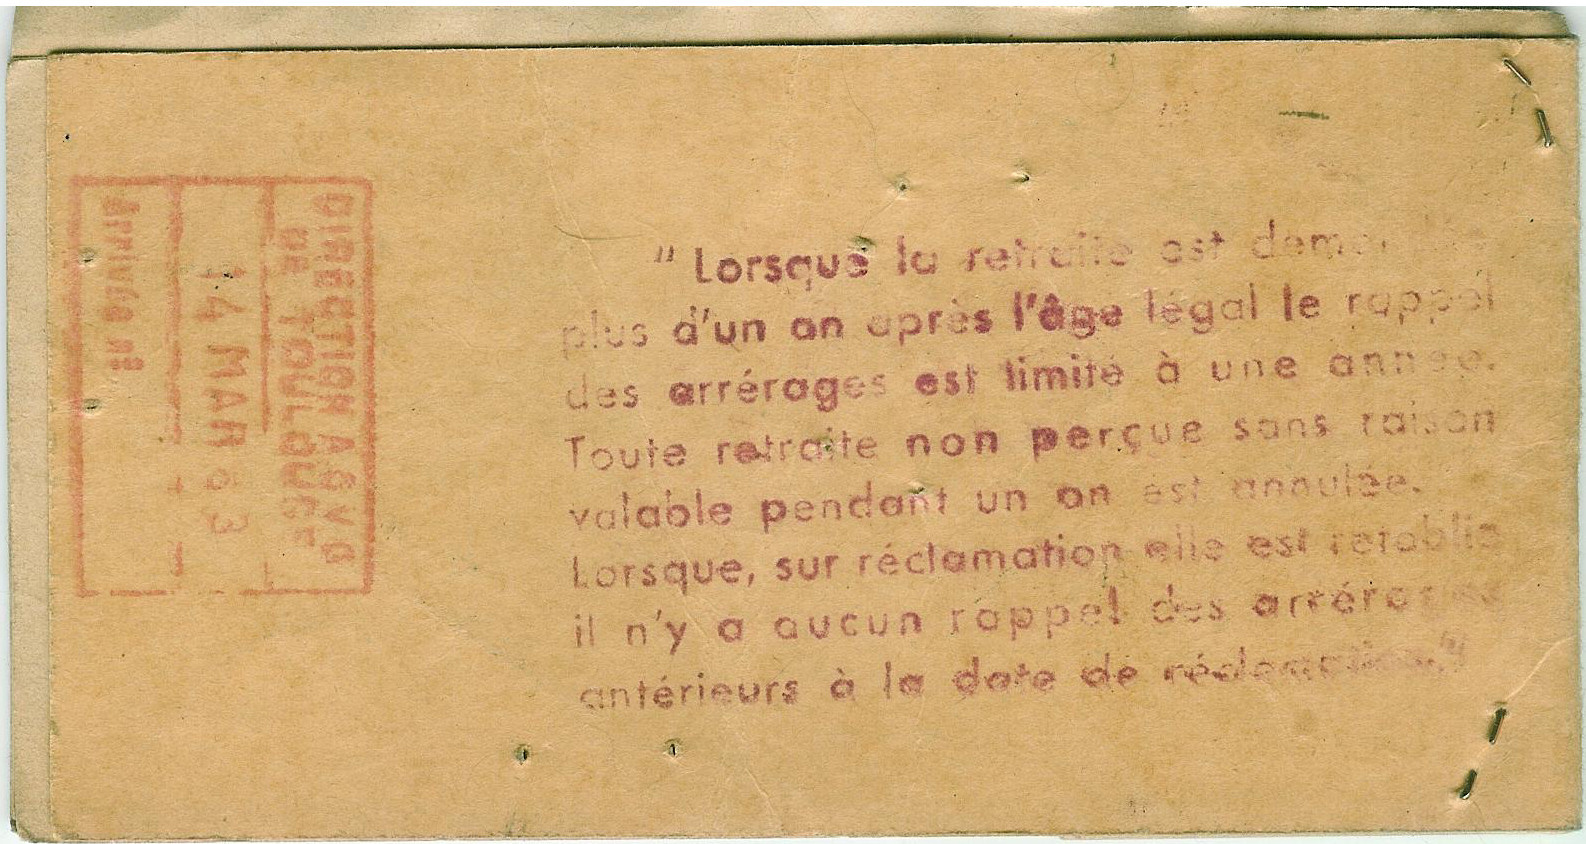 DIRECTION AGVG
DE TOULOUSE
14 MAR 63
Arrivée n°
" Lorsque la retraite est
plus d'un an après l'âge légal le rappel
des arrérages est limité à une année.
Toute retraite non perçue sans raison
valable pendant un an est annulée.
Lorsque, sur réclamation elle est retablie
il n'y a aucun rappel des arrérages
antérieurs à la date de réclamation."